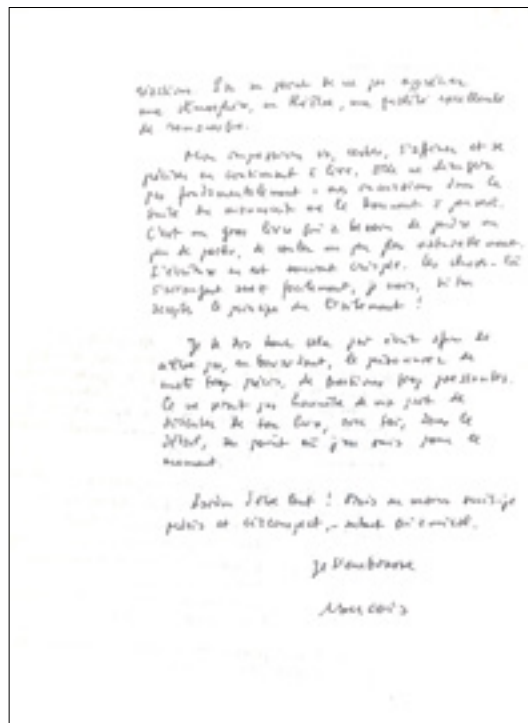 réaction. de ne pas apprécier
une atmosphère, un théâtre, une qualité excellente
de
Mon impression va, certes, s'affiner et se
préciser en continuant à lire. Elle ne changera
pas fondamentalement : dans la
suite me le donnent à penser.
C'est un gros livre qui a besoin de perdre un
peu de poids, de couler un peu plus naturellement.
L'écriture en est souvent crispée. Ces choses-là
s'arrangent assez facilement, je crois, si l'on
accepte le principe du traitement !
Je te dis tout cela par écrit afin de
n'être pas, en bavardant, le prisonnier de
mots trop précis, de questions trop pressantes.
Ce ne serait pas honnête de ma part de
discuter de ton livre, avec toi, dans le
détail, au point où j'en suis pour le
moment.
tout ! Mais au moins suis-je
précis et
Je t'embrasse